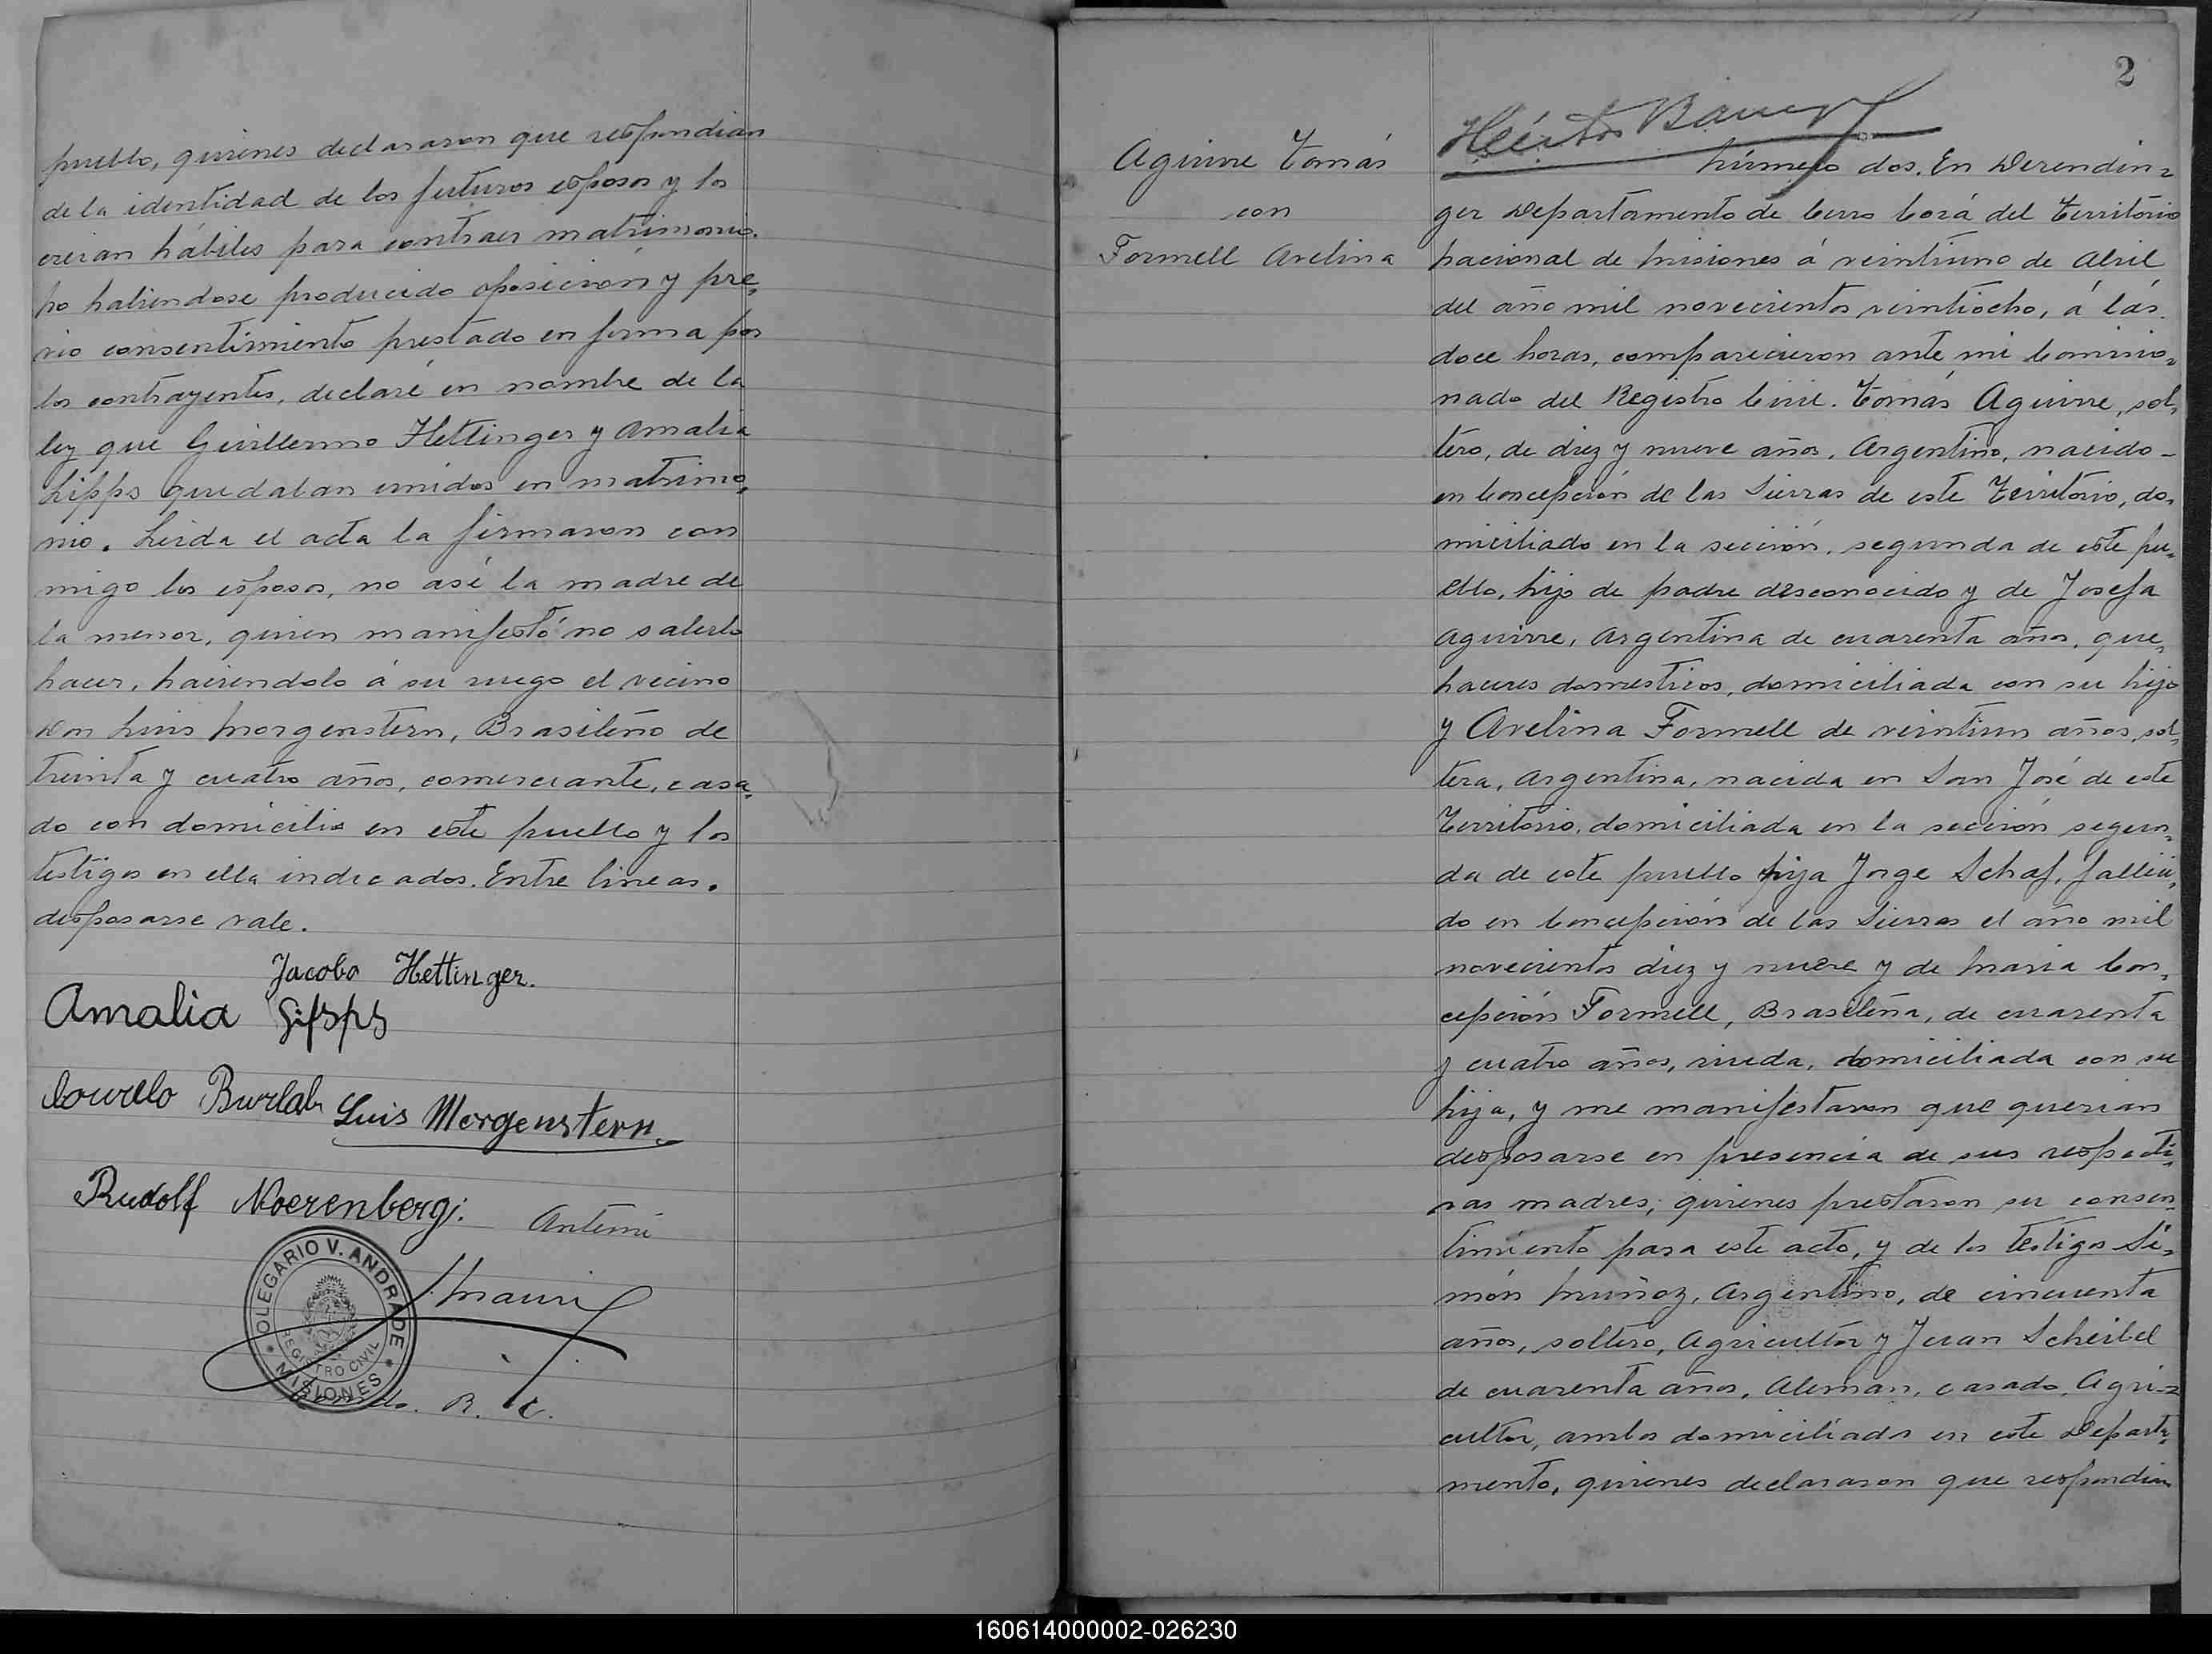 pueblo, quienes declararon que respondian
de la identidad de los futuros esposos y los
creian hábiles para contraer matrimonio.
No habiendose producido oposición y pre,
vio consentimiento prestado en forma por
los contrayentes, declaré en nombre de la
ley que Guillermo Hettinger y Amalia
Lipps quedaban unidos en matrimo,
nio. Leida el acta la firmaron con
migo los esposos, no asi la madre de
la menor, quien manifestó no saberlo
hacer, haciendolo á su ruego el vecino
Don Luis Morgenstern, Brasileño de
treinta y cuatro años, comerciante, casa,
do con domicilio en este pueblo y los
testigos en ella indicados. Entre lineas.
desposarse vale.
Jacobo Hettinger.
Amalia Lipps
Luis Morgenstern
Rudolf Noerenberg.
Ante mi
OLEGARIO V. ANDRADE
REGISTRO CIVIL
MISIONES
R. C.
2
Aguirre Tomás
con
Formell Avelina
Héctor
Número dos. En Derendin=
ger Departamento de Cerro Corá del Territorio
Nacional de Misiones á veintiuno de Abril
del año mil novecientos veintiocho, á las
doce horas, comparecieron ante mi Comisio,
nado del Registro Civil. Tomás Aguirre, sol,
tero, de diez y nueve años, Argentino, nacido
en Concepción de las Sierras de este Territorio, do,
miciliado en la sección, segunda de este pu,
eblo, hijo de padre desconocido y de Josefa
Aguirre, Argentina de cuarenta años, que,
haceres domesticos, domiciliada con su hijo
y Avelina Formell de veintiun años, sol,
tera, Argentina, nacida en San José de este
Territorio, domiciliada en la sección segun,
da de este pueblo hija Jorge Schaf, falleci,
do en Concepción de las Sierras el año mil
novecientos diez y nueve y de Maria Con,
cepción Formell, Brasileña, de cuarenta
y cuatro años, viuda, domiciliada con su
hija, y me manifestaron que querian
desposarse en presencia de sus respecti,
vas madres; quienes prestaron su consen,
timiento para este acto, y de los testigos Si,
món Muñoz, Argentino, de cincuenta
años, soltero, Agricultor y Juan Scheibel
de cuarenta años, Aleman, casado, Agri=
cultor, ambos domiciliados en este Departa,
mento, quienes declararon que respondian
160614000002-026230